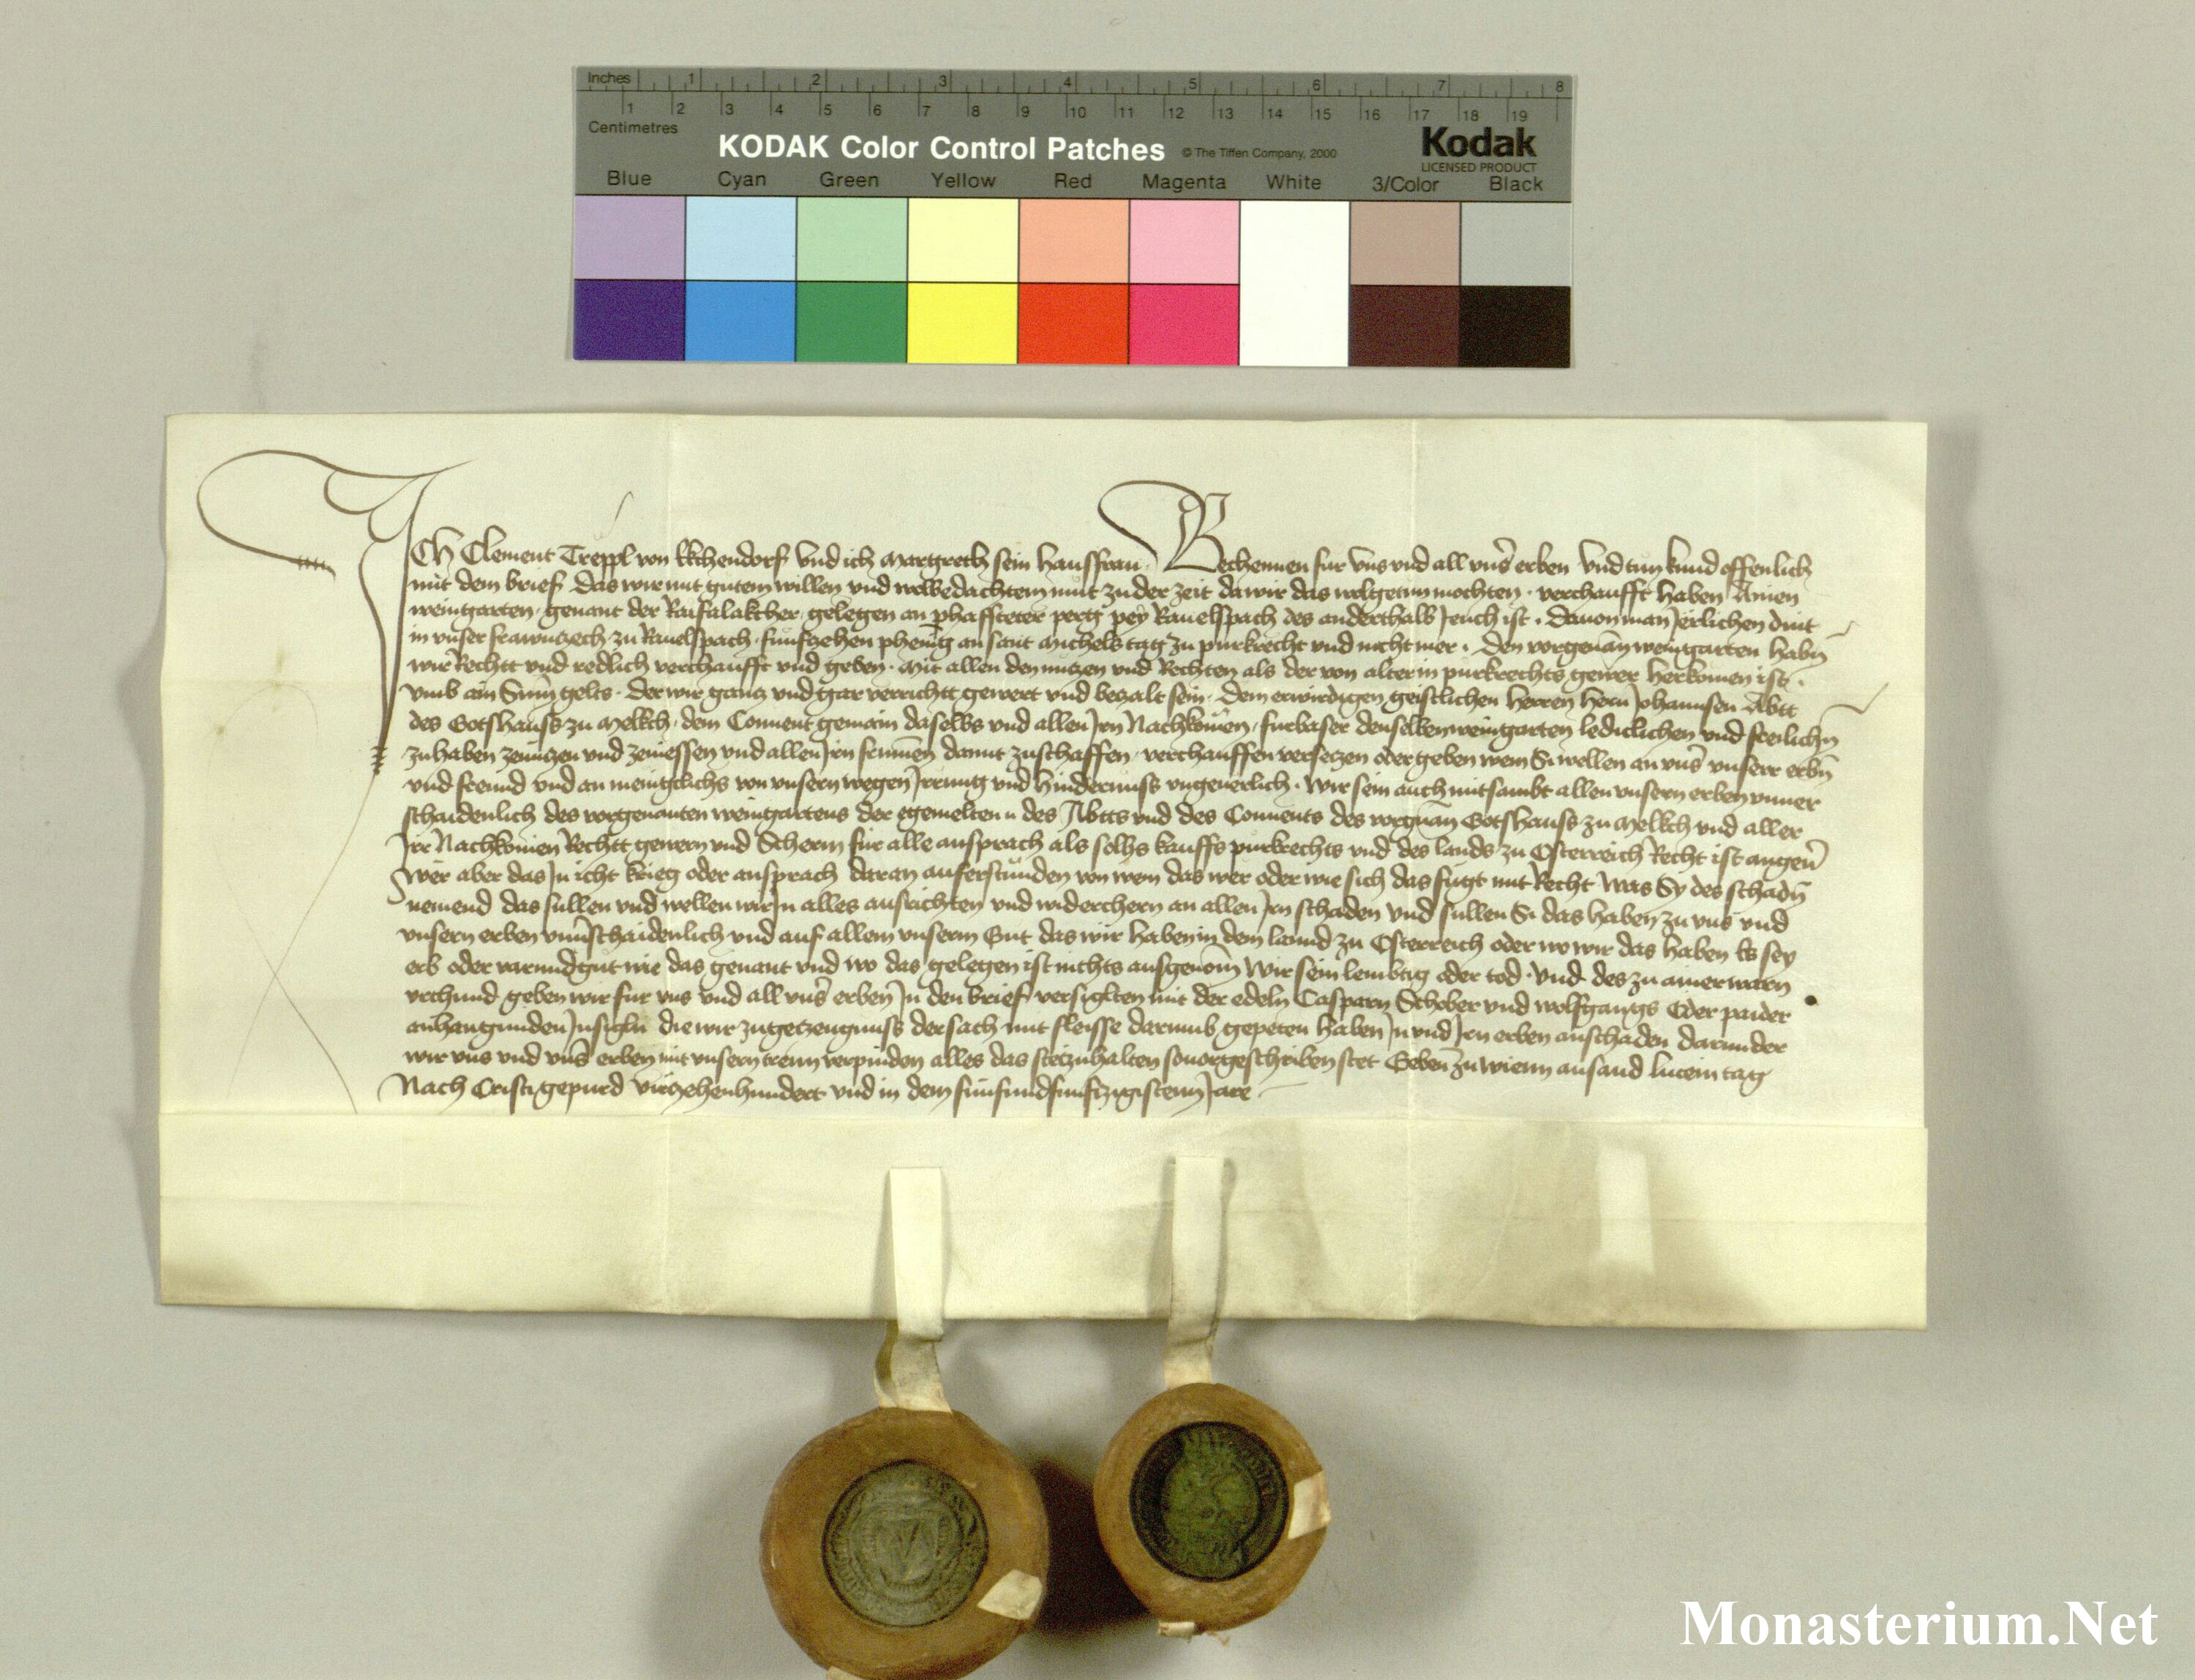 Inches 1 2 3 4 5 6 7 8
1 2 3 4 5 6 7 8 9 10 11 12 13 14 15 16 17 18 19
Centimetres
KODAK Color Control Patches © The Tiffen Company, 2000 Kodak
LICENSED PRODUCT
Blue Cyan Green Yellow Red Magenta White 3/Color Black
Ich Clement Treppl von Ekchendorf vnd ich Margreth sein hausfrau Bechennen fur vns vnd all vnser erben vnd tun kund offenlich
mit dem brief das wir mit gutem willen vnd wolbedachtem mut zu der zeit da wir das wolgetun mochten verchaufft haben Ainen
weingarten genant der Raifalakcher gelegen an phaffsteter perg pey Rauelspach des anderthalb Jeuch ist. dauon man Jerlichen dint
in vnser frawnzech zu Rauelspach funfzehen phenig an sant Michels tag zu purkrecht vnd nicht mer. Den vorgenan weingarten habn
wir Rechtt vnd redlich verchaufft vnd geben. Mit allen den nutzen vnd Rechten als der von alter in purkrechts gewer herkomen ist.
vmb ain Sum gelts. der wir gancz vnd gar verrichtt gewert vnd bezalt sein. dem erwirdigen geistlichen herren hern Johannsen Abtt
des Gotshauss zu Melkch. dem Conuent gemain daselbs vnd allen Jrn Nachkomen. furbaser denselben weingarten lediclichen vnd freilichn
zuhaben zenuczen vnd zeniessen vnd allen Jrn frumen damit zuschaffen. verchauffen versetzen oder geben wem Si wellen an vns vnserr erbn
vnd freund vnd an meniclichs von vnsern wegen Jrrung vnd hindernuss vngeuerlich. wir sein auch mitsambt allen vnsern erben vnuer
schaidenlich des vorgenanten weingartens der egemelten des Abtts vnd des Conuents des vorgnan Gotshauss zu Melkch vnd aller
Jrr Nachkomen Rechtt gewern vnd Scherm fur alle ansprach als solhs kauffs purkrechts vnd des lands zu Osterreich Recht ist angeuer
wer aber das Jn icht krieg oder ansprach daran auferstunden von wem das wer oder wie sich das fugt mit Recht was Sy des schadn
nemend das sullen vnd wellen wir Jn alles ausrichten vnd widerchern an allen Jrn schaden vnd sullen Si das haben zu vns vnd
vnsern erben vnuerschaidenlich vnd auf allem vnserm Gut das wir haben in dem lannd zu Osterreich oder wo wir das haben Es sey
erb oder varundgut wie das genant vnd wo das gelegen ist nichts ausgenom wir sein lembtig oder tod. vnd des zu ainer warn
vrchund geben wir fur vns vnd all vnser erben Jn den brief versiglten mit der edeln Casparn Schober vnd wolfgangs Eder paider
anhangunden Jnsigln die wir zu getzeugnuss der sach mit fleisse darumb gepeten haben Jn vnd Jrn erben anschaden darunder
wir vns vnd vnser erben mit vnsern trewn verpinden alles das stetzuhalten so vorgeschriben stet Geben zu wienn an sand lucein tag
Nach Cristi gepurd vierzehenhundert vnd in dem funfundfunfzigistem Jare
Monasterium.Net